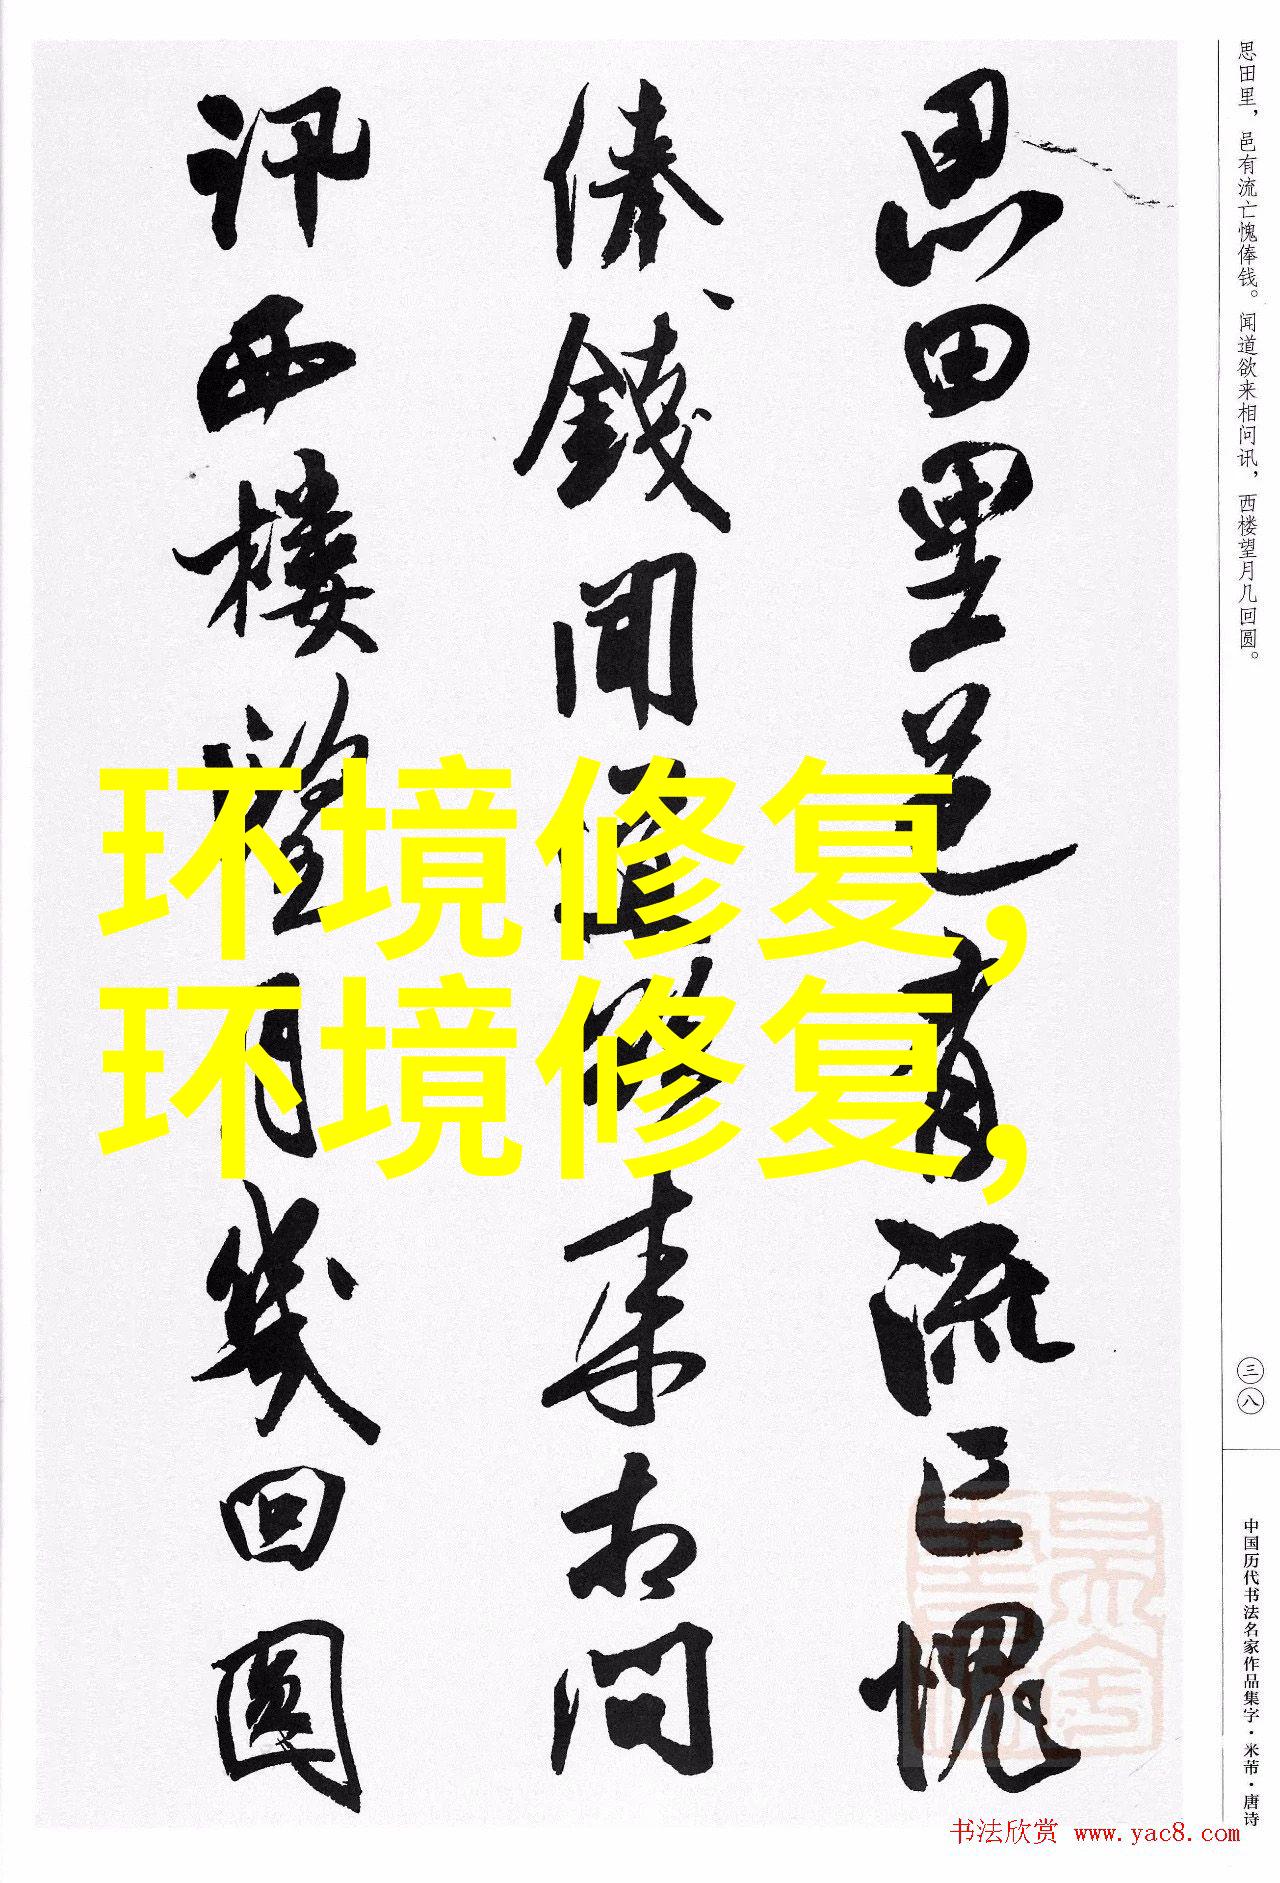 思田里邑有流亡愧
俸钱闻道欲来相问
讯西楼望月几回圆
环境修复,
环境修复,
思田里，邑有流亡愧俸钱。闻道欲来相问讯，西楼望月几回圆。
三八
中国历代书法名家作品集字·米芾·唐诗
书法欣赏 www.yac8.com